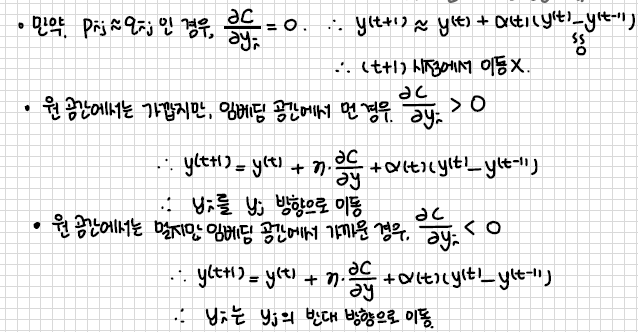 • 만약. Pij≈qij 인 경우, ∂C/∂yi = 0. ∴ y(t+1) ≈ y(t) + α(t)(y(t)-y(t-1))
≈
0
∴ (t+1) 시점에서 이동X.
• 원 공간에서는 가깝지만, 임베딩 공간에서 먼 경우. ∂C/∂yi > 0
∴ y(t+1) = y(t) + η·∂C/∂y + α(t)(y(t)-y(t-1))
∴ yi를 yj 방향으로 이동
• 원 공간에서는 멀지만 임베딩 공간에서 가까운 경우, ∂C/∂yi < 0
∴ y(t+1) = y(t) + η·∂C/∂y + α(t)(y(t)-y(t-1))
∴ yi는 yj의 반대 방향으로 이동.